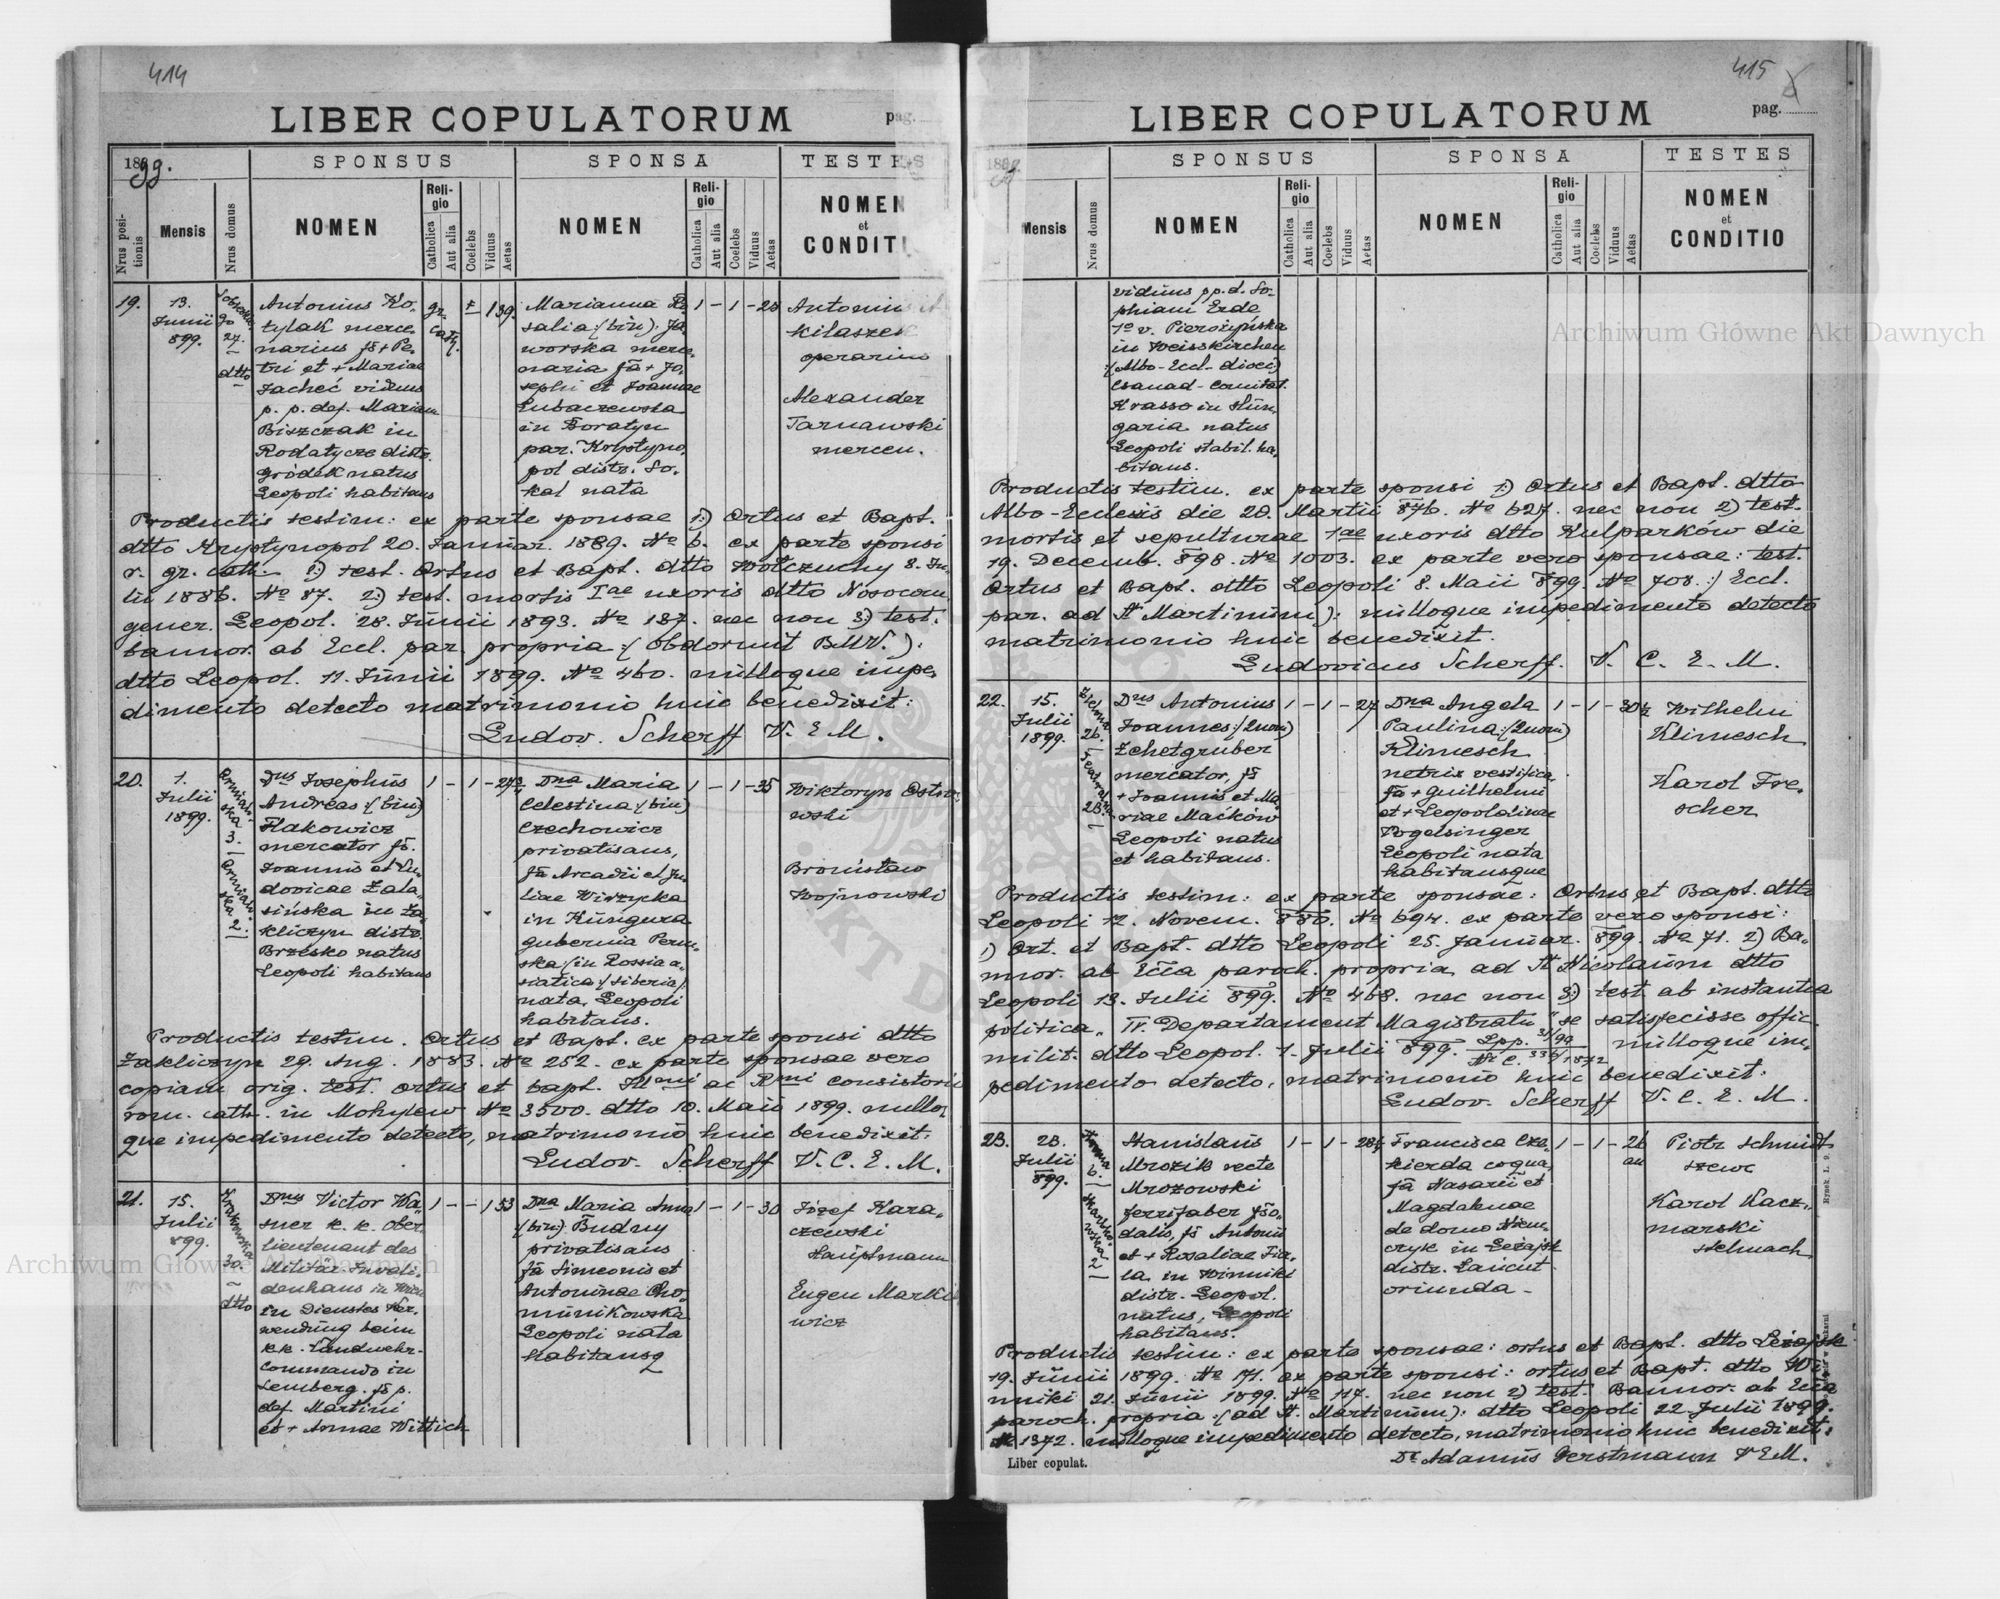 414
LIBER COPULATORUM
pag.
1899.
SPONSUS
SPONSA
TESTES
Nrus positionis
Mensis
Nrus domus
NOMEN
Religio
Catholica
Aut alia
Coelebs
Viduus
Aetas
NOMEN
Religio
Catholica
Aut alia
Coelebs
Viduus
Aetas
NOMEN
et
CONDITI
19.
13.
Junii
899.
27.
dtto
Antonius Ko-
tylak merce-
narius fs + Pe-
tri et + Mariae
Jacheć viduus
p. p. def. Mariam
Biszczak in
Rodatycze distr.
Gródek natus
Leopoli habitans
gr.
cath.
1 39.
Marianna Ro-
salia :(bin): Ja-
worska merce-
naria fa + Jo-
sephi et Joannae
Lubaczewska
in Boratyn
par. Krystyno-
pol distr. So-
kal nata
1 - 1 - 28
operarius
Alexander
Tarnawski
mercen.
Productis testim: ex parte sponsae 1:) Ortus et Bapt.
dtto Krystynopol 20. Januar. 1889. No 6. ex parte sponsi
r. gr. cath. 1:) test. Ortus et Bapt. dtto Wołczuchy 8. Ju-
lii 1886. No 87. 2:) test. mortis Iae uxoris dtto Nosocom.
gener. Leopol. 28. Junii 1893. No 187. nec non 3:) test.
bannor. ab Eccl. par. propria :( Obdormit B.M.V. ):
dtto Leopol. 11. Junii 1899. No 460. nulloque impe-
dimento detecto matrimonio huic benedixit:
Ludov. Scherff V. E. M.
20.
1.
Julii
1899.
3.
2.
Dnus Josephus
Andreas :(bin)
Flakowicz
mercator fs.
Joannis et Lu-
dovicae Zala-
sińska in Za-
kliczyn distr.
Brzesko natus
Leopoli habitans
1 - 1 -
Dna Maria
Celestina :(bin)
Czechowicz
privatisans,
fa Arcadii et Ju-
liae Wirzycka
in Kungura
gubernia Perm-
ska :/in Rossia a-
siatica :/ Siberia/:
nata, Leopoli
habitans.
1 - 1 - 35
Wiktoryn Ostro-
wski
Bronisław
Wojnowski
Productis testim. Ortus et Bapt. ex parte sponsi dtto
Zakliczyn 29. Aug. 1883. No 252. ex parte sponsae vero
copiam orig. test. ortus et bapt. Illmi ac Rmi consistorii
rom. cath. in Mohylew No 3500. dtto 10. Maii 1899. nullo-
que impedimento detecto, matrimonio huic benedixit:
Ludov. Scherff V. C. E. M.
21.
15.
Julii
899.
Krakowska
30.
dtto
Dnus Victor Wa-
sner k. k. Ober-
lieutenant des
Militär Invali-
denhaus in Wien
in Dienstes Ver-
wendung beim
k.k. Landwehr-
commando in
Lemberg. fs p.
def. Martini
et + Annae Wittich
1 - - 1 53
Dna Maria Anna
(bin:) Budny
privatisans
fa Simeonis et
Antoninae Cho-
munikowska
Leopoli nata
habitansq
1 - 1 - 30
Józef Kara-
czewski
Hauptmann
Eugen Marki
wicz
415
LIBER COPULATORUM
pag.
SPONSUS
SPONSA
TESTES
Mensis
Nrus domus
NOMEN
Religio
Catholica
Aut alia
Coelebs
Viduus
Aetas
NOMEN
Religio
Catholica
Aut alia
Coelebs
Viduus
Aetas
NOMEN
et
CONDITIO
viduus pp. d. So-
phiam Erde
1o v. Pierożyńska
in Weisskirchen
:(Albo-Eccl. dioec:)
Csanad-Comitat.
Krasso in Hun-
garia natus
Leopoli stabil. ha-
bitans.
Productis testim. ex parte sponsi 1:) Ortus et Bapt. dtto
Albo-Eclesis die 20. Martii 876. No 627. nec non 2) test.
mortis et sepulturae 1ae uxoris dtto Kulparków die
19. Decemb. 898. No 1003. ex parte vero sponsae: test.
Ortus et Bapt. dtto Leopoli 8. Maii 899. No 708. :) Eccl.
par. ad St Martinum): nulloque impedimento detecto
matrimonio huic benedixit.
Ludovicus Scherff. V. C. E. M.
22.
15.
Julii
1899.
26.
28.
Dnus Antonius
Joannes :(2nom)
Zehetgruber
mercator, fs
+ Joannis et Ma-
riae Maćków
Leopoli natus
et habitans.
1 - 1 - 27
Dna Angela
Paulina :(2nom)
Klimesch
netrix vestifica
fa + Guilhelmi
et + Leopoldinae
Vogelsinger
Leopoli nata
habitansque
1 - 1 - 30½
Wilhelm
Klimesch
Karol Fre-
scher
Productis testim: ex parte sponsae: Ortus et Bapt. dtto
Leopoli 12. Novem. 880. No 694. ex parte vero sponsi:
1) Ort. et Bapt. dtto Leopoli 25. Januar. 899. No 71. 2) Ba-
nnor. ab Eccla paroch. propria ad St Nicolaum dtto
Leopoli 13. Julii 899. No 468. nec non 3:) test. ab instantia
politica „IV. Departament Magistratu" se satisfecisse offic.
milit. dtto Leopol. 1. Julii 899. nulloque im-
pedimento detecto, matrimonio huic benedixit:
Ludov. Scherff V. C. E. M.
23.
23.
Julii
899.
6.
2
Stanislaus
Mrozik recte
Mrozowski
ferrifaber fso-
dalis, fs Antonii
et + Rosaliae Fir-
la in Winniki
distr. Leopol.
natus, Leopoli
habitans.
1 - 1 -
Francisca Cze-
kierda
fa Nasarii et
Magdalenae
de domo Niem-
czyk in Leżajsk
distr. Łańcut
oriunda -
1 - 1 - 26
an
Piotr Schmidt
szewc
Karol Kacz-
marski
stelmach
Productis testim: ex parte sponsae: ortus et Bapt. dtto Leżajsk
19. Junii 1899. No 171. ex parte sponsi: ortus et Bapt. dtto Wi-
nniki 21. Junii 1899. No 117. nec non 2) test. Bannor. ab Eccla
paroch. propria :(ad St. Martinum): dtto Leopoli 22 Julii 1899.
No 1372. nulloque impedimento detecto, matrimonio huic benedixit:
Dr Adamus Gerstmann V E M.
Liber copulat.
Archiwum Główne Akt Dawnych
Archiwum Główne Akt Dawnych